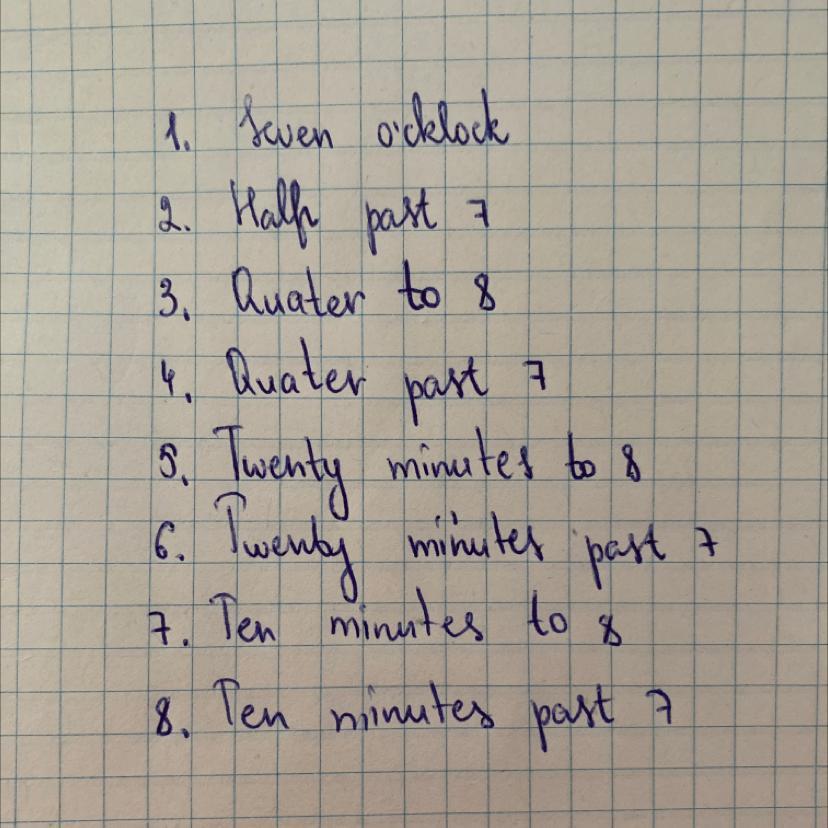 1. Seven o'cklock
2. Half past 7
3. Quater to 8
4. Quater past 7
5. Twenty minutes to 8
6. Twenty minutes past 7
7. Ten minutes to 8
8. Ten minutes past 7